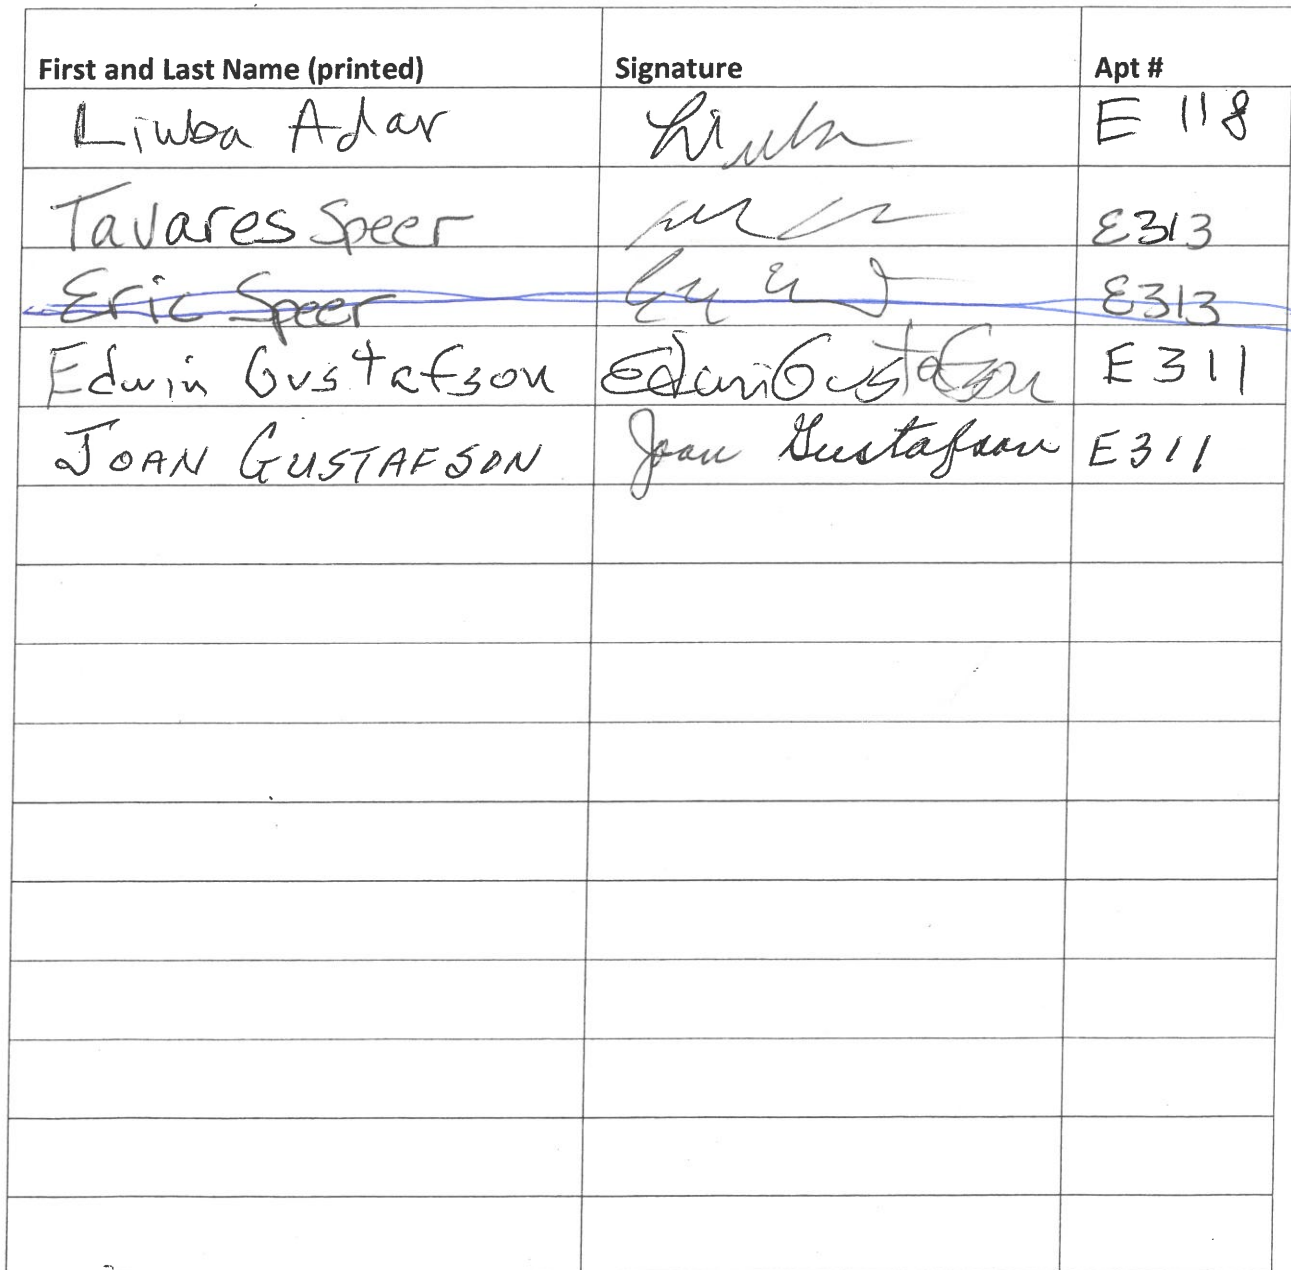 First and Last Name (printed) Signature Apt #
Liuba Adar Liuba E 118
Tavares Speer E313
Eric Speer E313
Edwin Gustafson Edwin Gustafson E311
JOAN GUSTAFSON Joan Gustafson E311